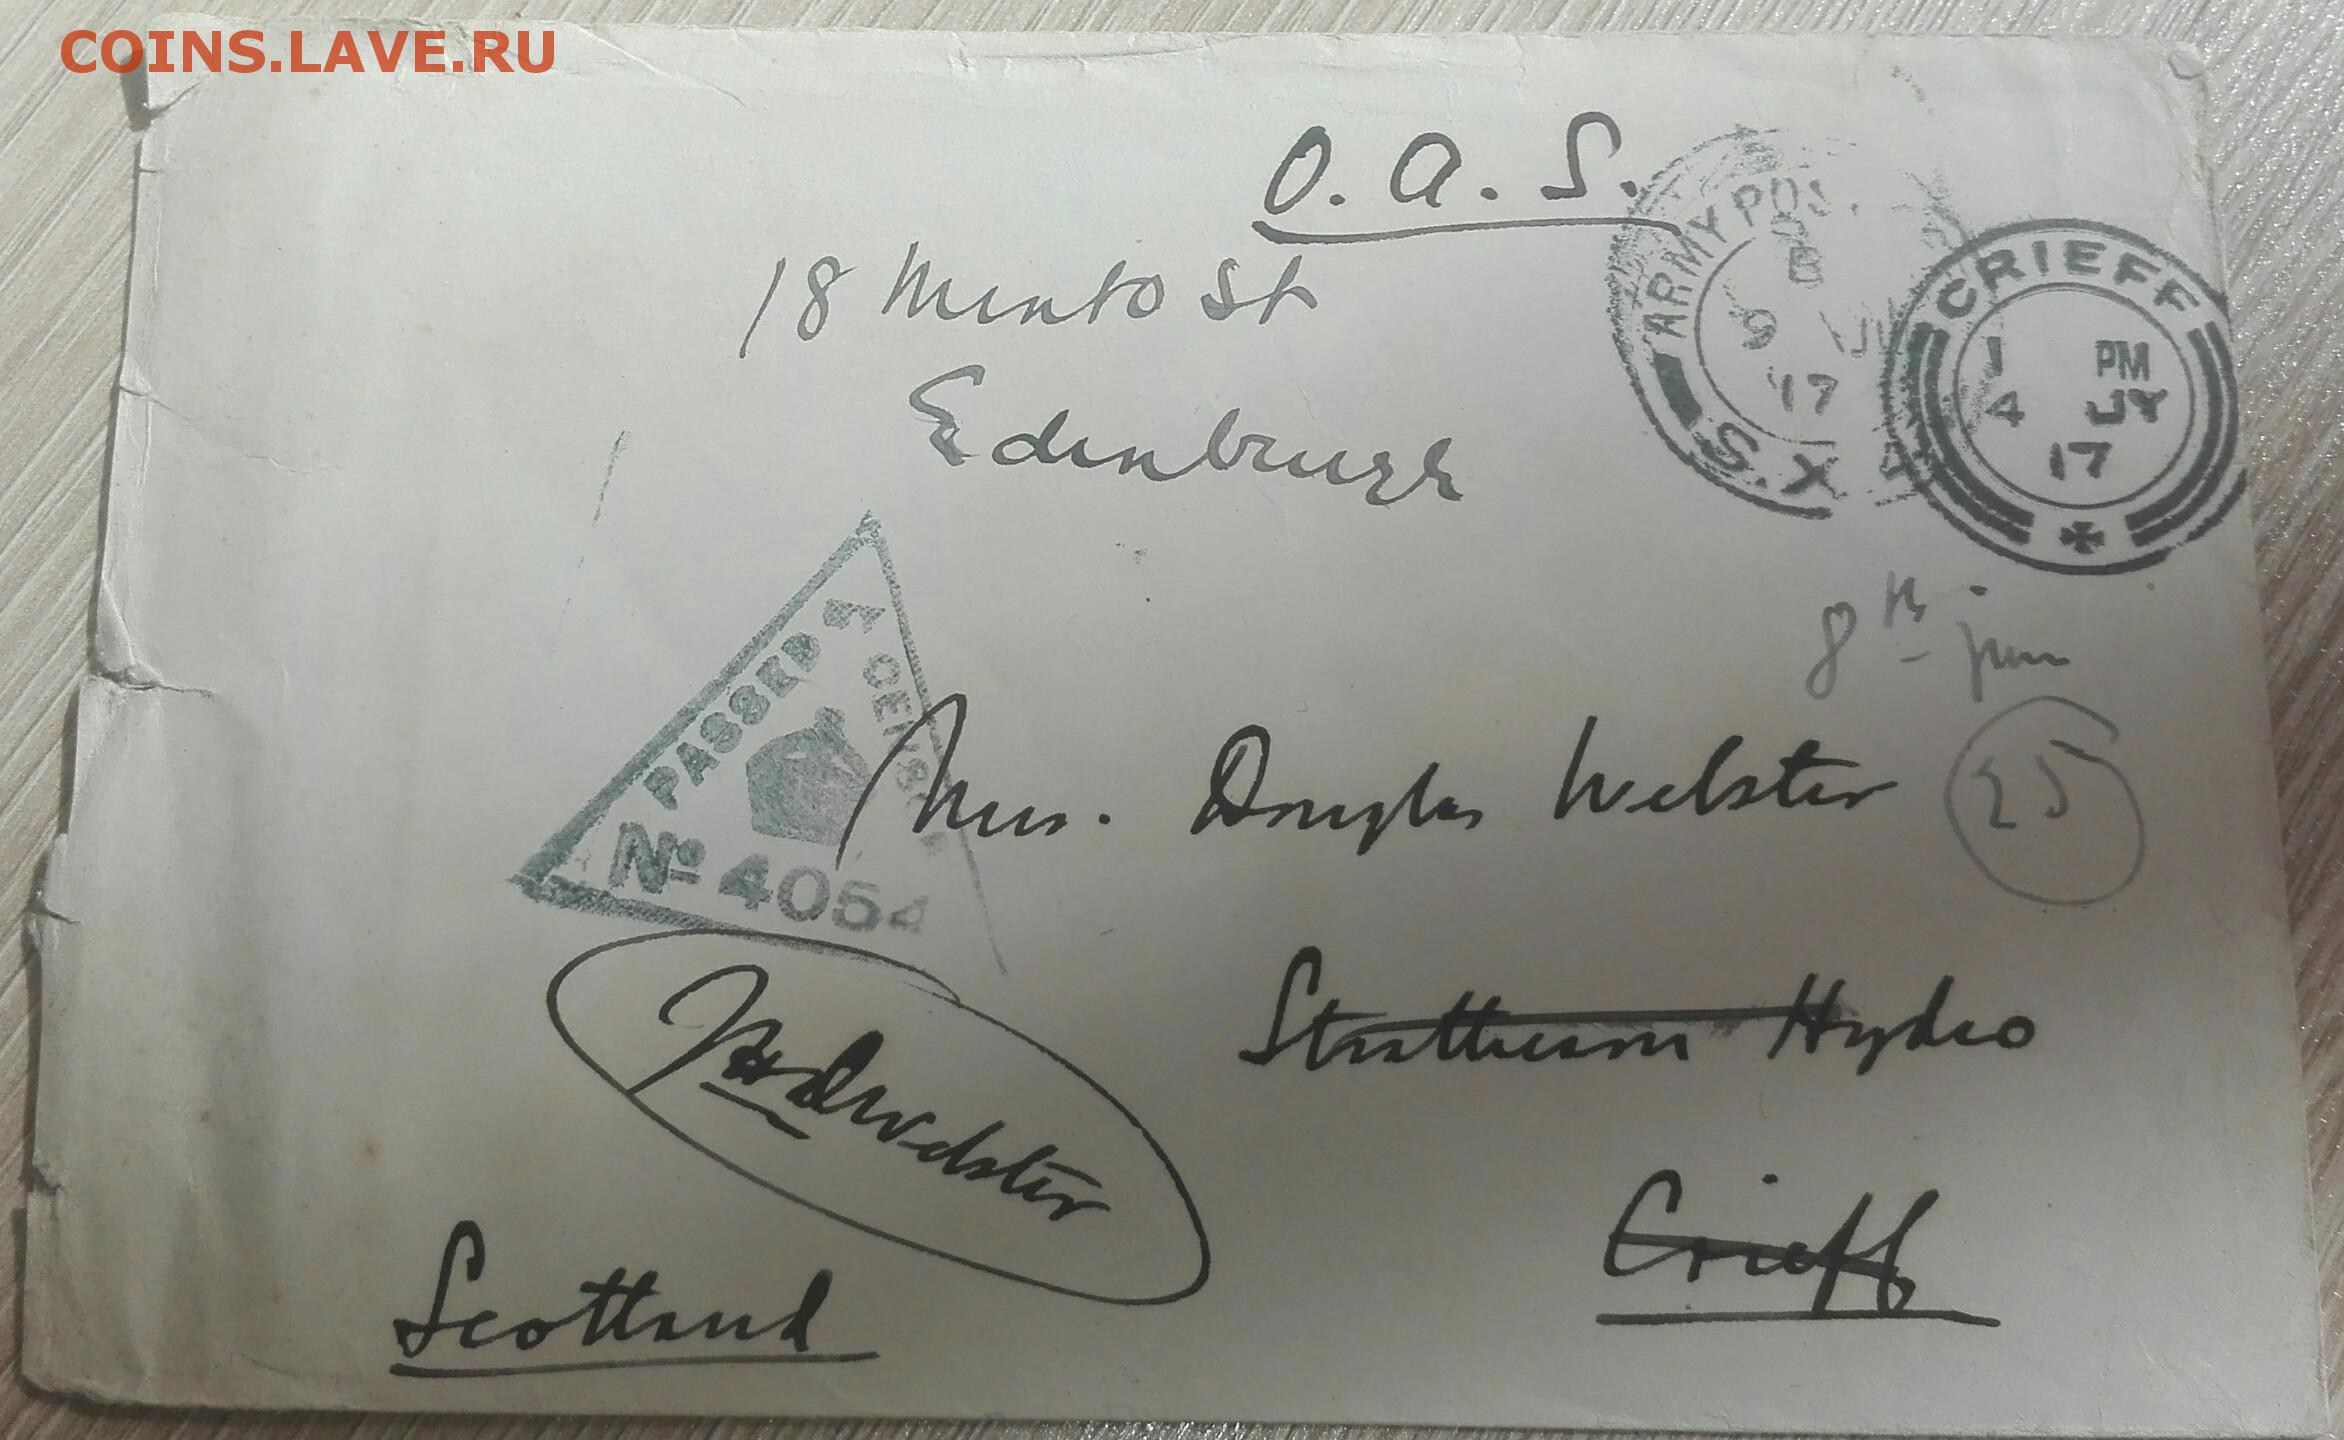 COINS.LAVE.RU
O.A.S.
ARMY POS
B
9 JU
17
S.X
CRIEFF
1 PM
4 JY
17
18 Minto St
Edinburgh
PASSED BY
CENSOR
No 4054
8th June
25
Mrs. Douglas Webster
Strathearn Hydro
Crieff
Webster
Scotland